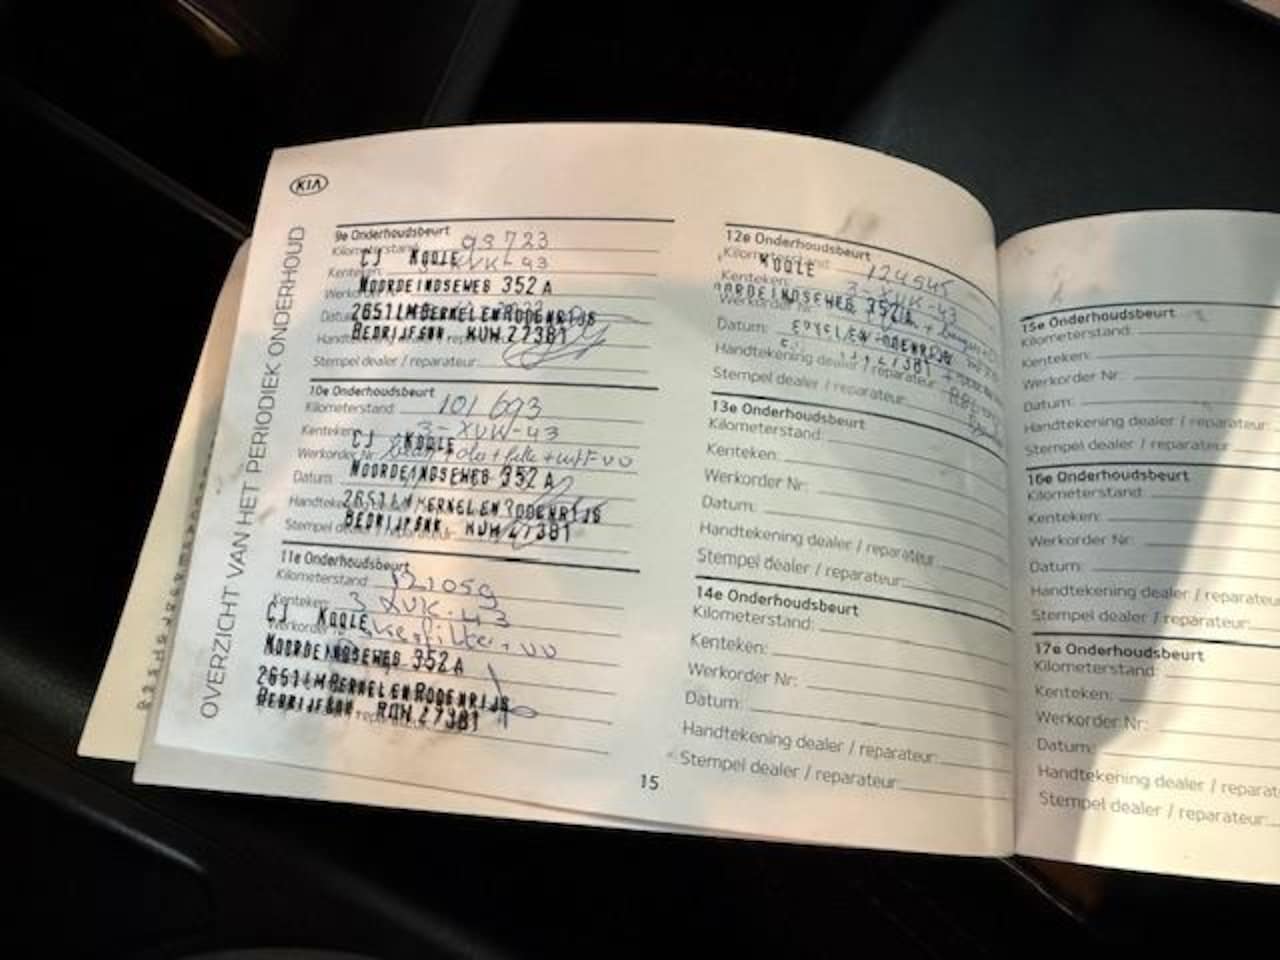 KIA
OVERZICHT VAN HET PERIODIEK ONDERHOUD
9e Onderhoudsbeurt
Kilometerstand: 93723
CJ KOOLE
Kenteken: 3-XVK-43
NOORDEINDSEWEG 352 A
2651LM BERKEL EN RODENRIJS
BEDRIJFSNR. 27381
Stempel dealer / reparateur:
10e Onderhoudsbeurt
Kilometerstand: 101693
Kenteken: 3-XVK-43
CJ KOOLE
Werkorder Nr:
NOORDEINDSEWEG 352 A
Datum:
2651LM BERKEL EN RODENRIJS
BEDRIJFSNR. 27381
11e Onderhoudsbeurt
Kilometerstand: 121059
Kenteken: 3 XVK-43
CJ KOOLE
NOORDEINDSEWEG 352 A
2651LM BERKEL EN RODENRIJS
BEDRIJFSNR. 27381
12e Onderhoudsbeurt
Kilometerstand: 124545
KOOLE
Kenteken: 3-XVK-43
Werkorder Nr:
Datum:
Handtekening dealer / reparateur:
Stempel dealer / reparateur:
13e Onderhoudsbeurt
Kilometerstand:
Kenteken:
Werkorder Nr:
Datum:
Handtekening dealer / reparateur:
Stempel dealer / reparateur:
14e Onderhoudsbeurt
Kilometerstand:
Kenteken:
Werkorder Nr:
Datum:
Handtekening dealer / reparateur:
Stempel dealer / reparateur:
15
15e Onderhoudsbeurt
Kilometerstand:
Kenteken:
Werkorder Nr:
Datum:
Handtekening dealer / reparateur:
Stempel dealer / reparateur:
16e Onderhoudsbeurt
Kilometerstand:
Kenteken:
Werkorder Nr:
Datum:
Handtekening dealer / reparateu
Stempel dealer / reparateur:
17e Onderhoudsbeurt
Kilometerstand:
Kenteken:
Werkorder Nr:
Datum:
Handtekening dealer / reparat
Stempel dealer / reparateur: